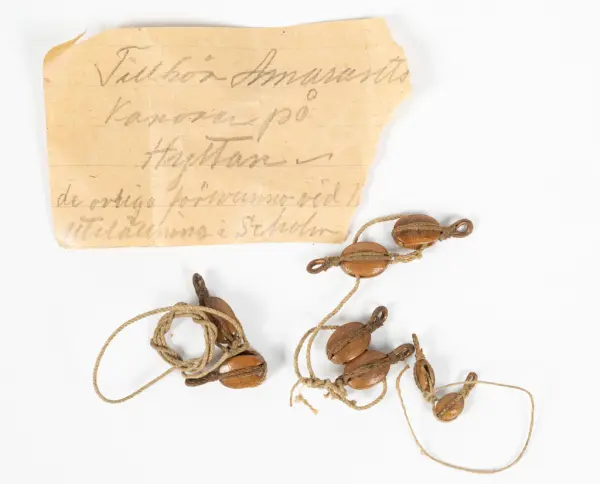 Tillhör Amarants
Kanoner på
Hyttan
de övriga försvunno vid
utställning i Stholm